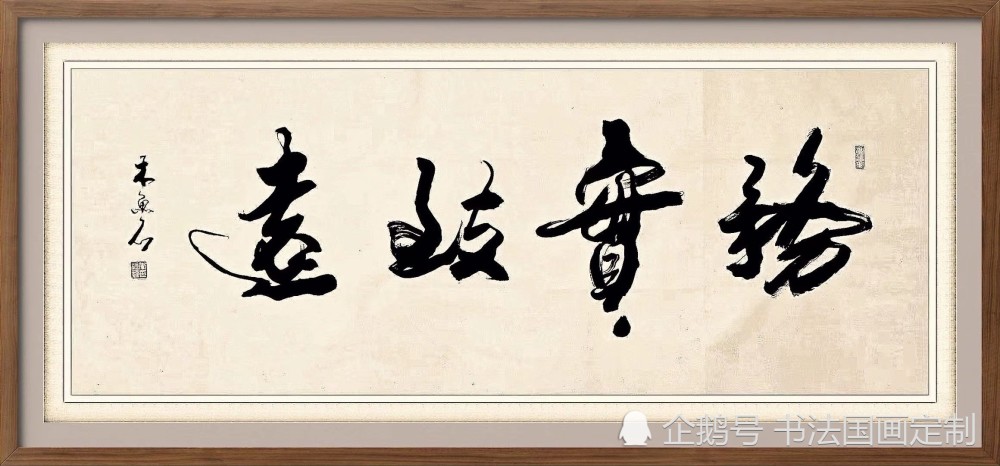 務實致遠
木魚石
企鹅号 书法国画定制